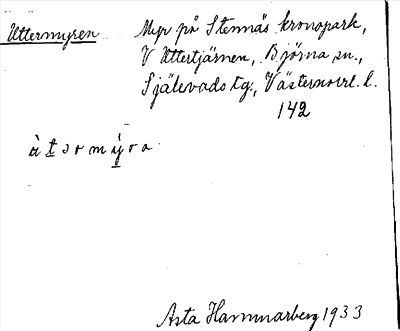 Uttermyren
Myr på Stennäs kronopark,
V Uttertjärnen, Björna sn.,
Själevads tg., Västernorrl. l.
142
ùtɔrmýra
Asta Hammarberg 1933